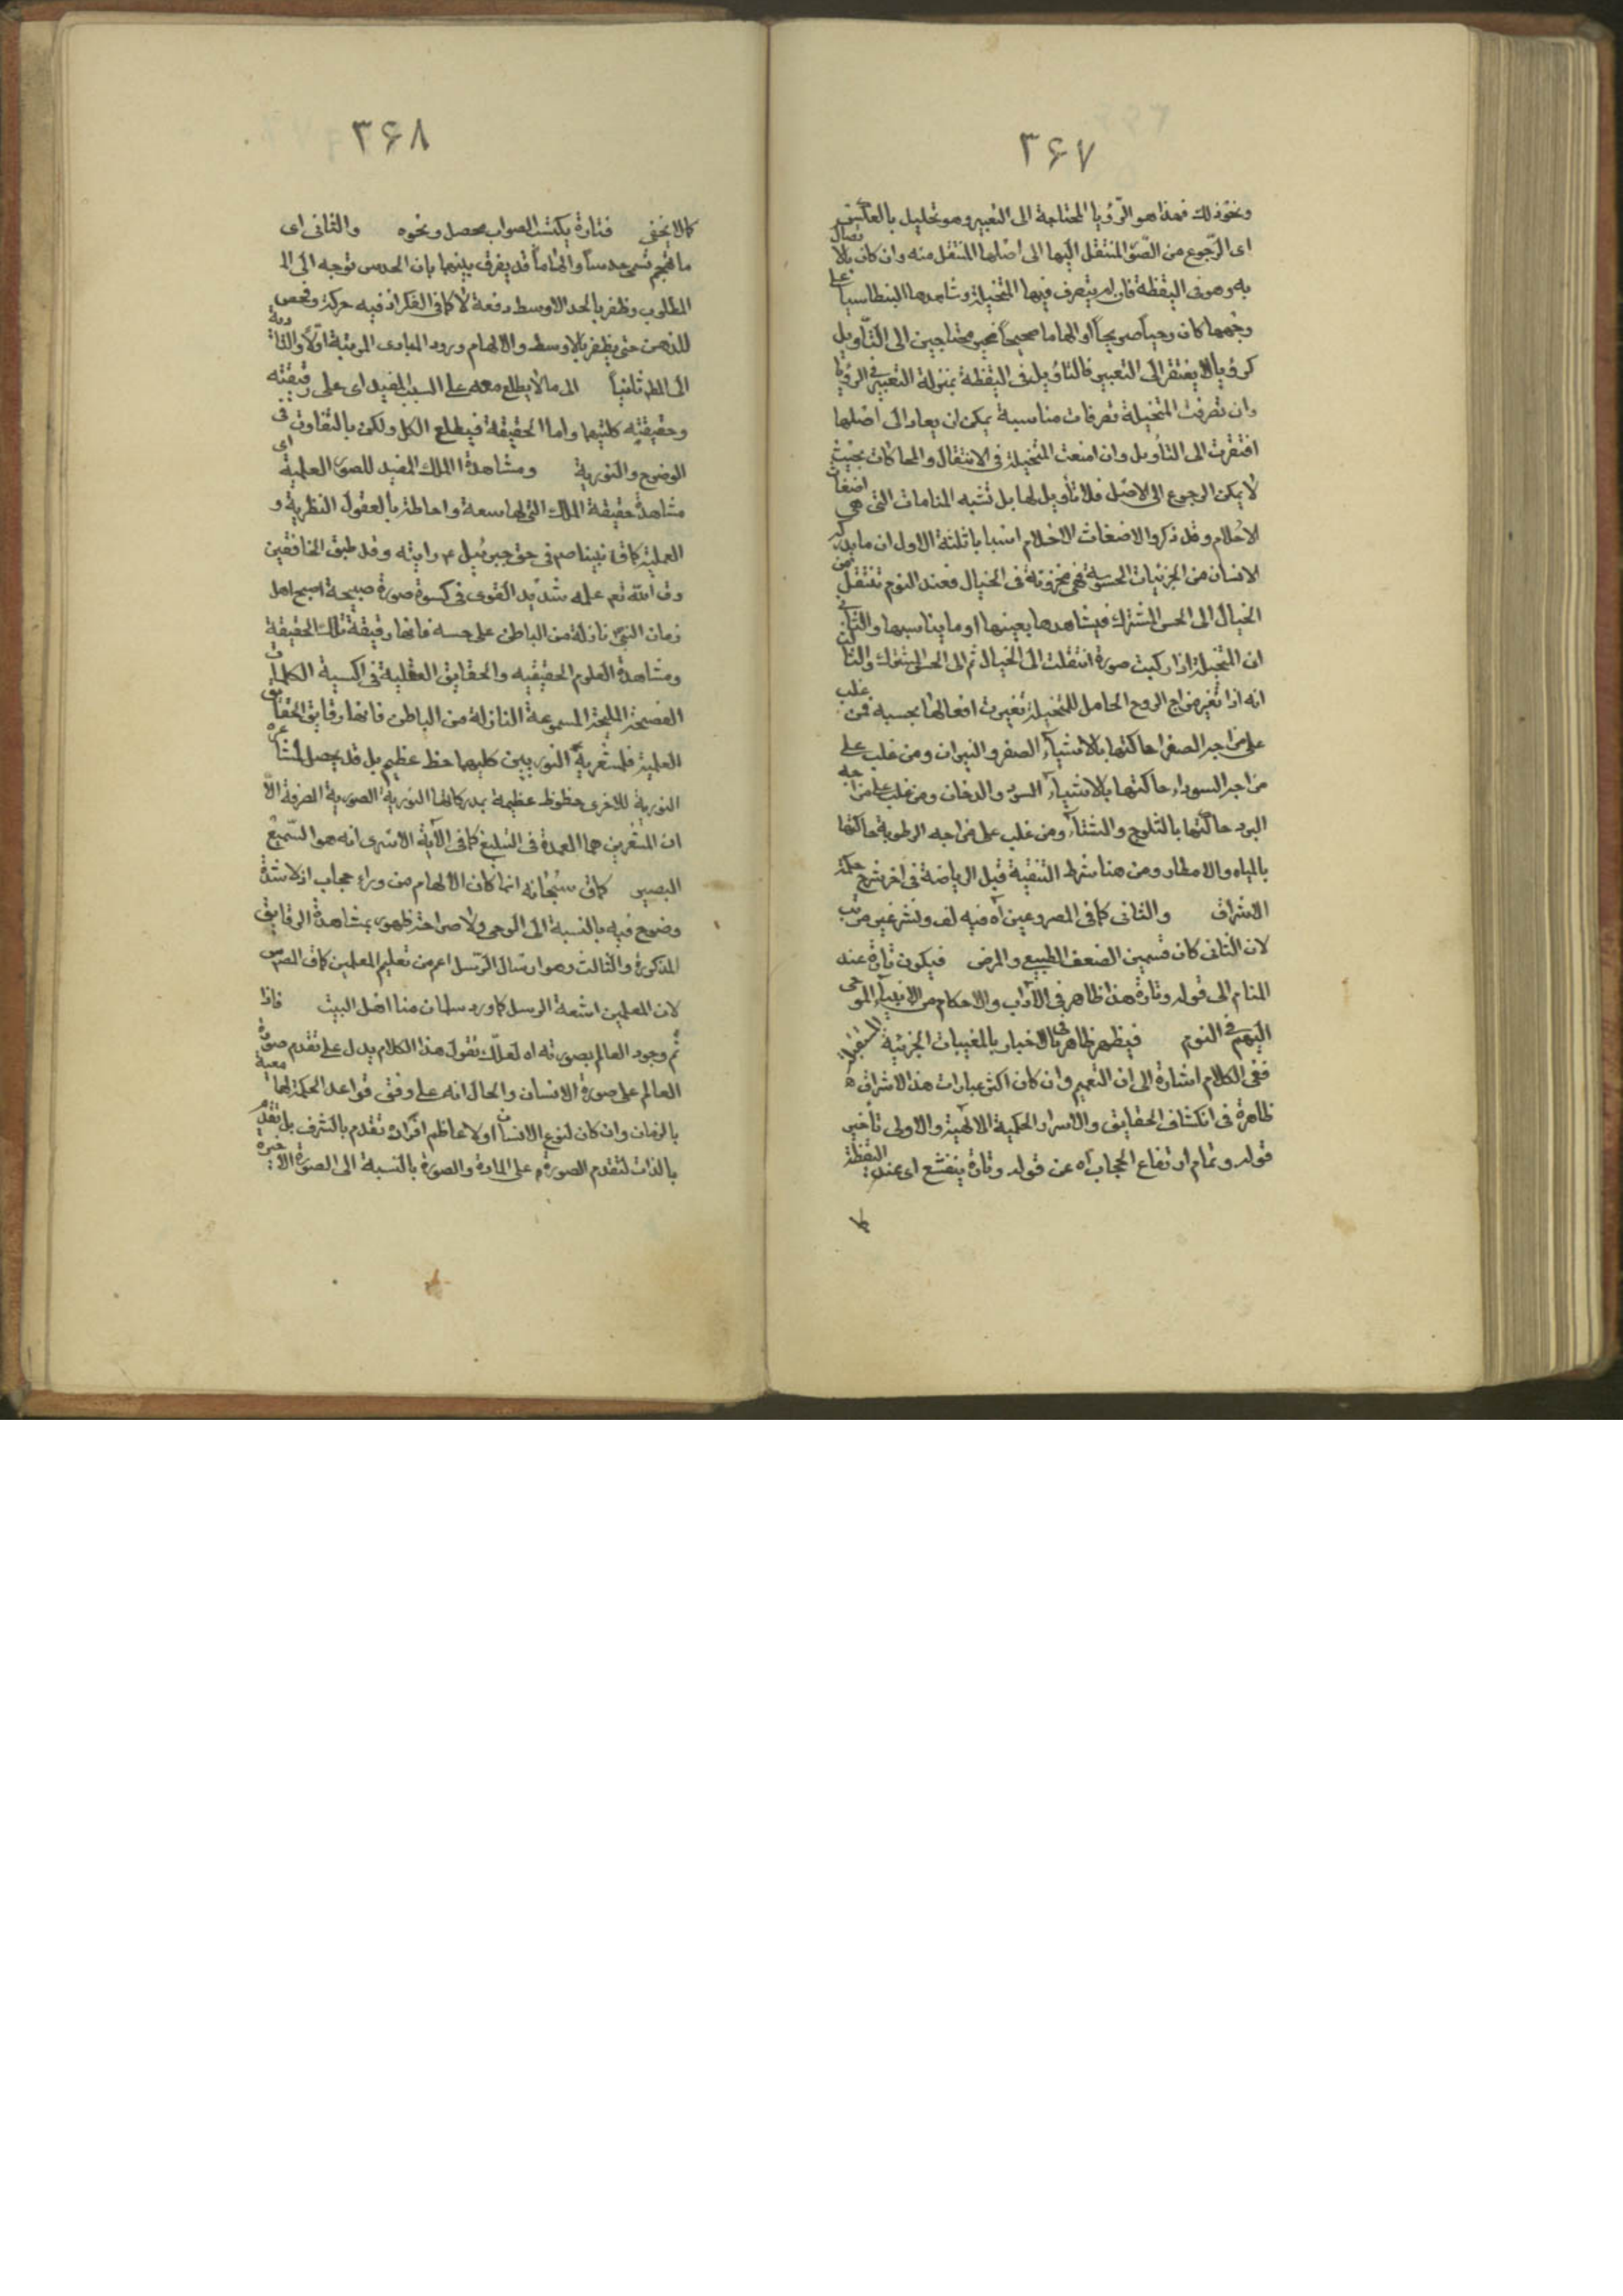 ۳۶۷
ونحو ذلك فهذا هو الرّؤيا المحتاجة الى التعبير وهو تحليل بالعكس
اى الرّجوع من الصّور المنتقل اليها الى اصلها المنتقل منه وان كان بالاتصال
به وهو فى اليقظة فان لم يتصرف فيها المتخيلة وشاهدها البنطاسيا على
وجهها كان وحياً صريحاً او الهاما صحيحاً غير محتاجين الى التّأويل
كرؤيا لا يفتقر الى التعبير فالتاويل فى اليقظة بمنزلة التعبير فى الرؤيا
وان تصرفت المتخيلة تصرفات مناسبة يمكن ان يعاد الى اصلها
افتقرت الى التاويل وان امنعت المتخيلة فى الانتقال والمحاكات بحيث
لا يمكن الرجوع الى الاصل فلا تأويل لها بل تشبه المنامات التى هى اضغاث
الاحلام وقد ذكروا لاضغاث الاحلام اسبابا ثلثة الاول ان ما يدركه
الانسان من الجزئيات المحسوسة فهى مخزونة فى الخيال فعند النوم تنتقل من
الخيال الى الحس المشترك فيشاهدها بعينها او ما يناسبها والثانى
ان المتخيلة اذا ركبت صورة انتقلت الى الخيال ثم الى الحس المشترك والثالث
انه اذا تغير مزاج الروح الحامل للمتخيلة تغيرت افعالها بحسبه فمن غلب
على مزاجه الصفرا حاكتها بالاشياء الصفر والنيران ومن غلب على
مزاجه السوداء حاكتها بالاشياء السود والدخان ومن غلب على مزاجه
البرد حاكتها بالثلوج والشتاء ومن غلب على مزاجه الرطوبة حاكتها
بالمياه والامطار ومن هنا شرط التنقية قبل الرياضة فى اخر شرح حكمة
الاشراق والثانى كما فى المصروعين اه فيه لف ونشر غير مرتب
لان الثانى كان قسمين الضعف الطبيعى والمرض فيكون تارة عنه
المنام الى قوله وتارة هذا ظاهر فى الآداب والاحكام من الانبياء الموحى
اليهم فى النوم فيظهر ظاهر فى الاخبار بالمغيبات الجزئية المستقبلة
ففى الكلام اشارة الى ان التعميم وان كان اكثر عبارات هذا الاشراق
ظاهرة فى انكشاف الحقايق والاسرار الحكمية الالهية والاولى تأخير
قوله وتمام ارتفاع الحجاب اه عن قوله وتارة ينقشع اى عند اليقظة
۳۶۸
كما لا يخفى فتارة يكتسب الصواب محصل ونحوه والثانى اى
ما هجم تسمى حدساً والهاماً قد يفرق بينهما بان الحدس توجه الى
المطلوب وظفر بالحد الاوسط دفعة لا كما فى الفكر اذ فيه حركة وفحص
للذهن حتى يظفر بالاوسط والالهام ورود المبادى المرتبة اولاً والتادية
الى المط ثانياً الى ما لا يطلع معه على السبب المفيد اى على رقيقته
وحقيقته كلتيهما واما الحقيقة فيطلع الكل ولكن بالتفاوت فى
الوضوح والنورية ومشاهدة الملك المفيد للصور العلمية اى
مشاهدة حقيقة الملك التى لها سعة واحاطة بالعقول النظرية و
العملية كما ق نبينا صم فى حق جبرئيل ع رايته وقد طبق الخافقين
وق الله تعم علمه شديد القوى فى كسوة صورة صبيحة اصبح اهل
زمان النبى نازلة من الباطن على حسه فانها رقيقة تلك الحقيقة
ومشاهدة العلوم الحقيقيه والحقايق العقلية فى اكسية الكلمات
الفصيحة المليحة المسموعة النازلة من الباطن فانها رقايق الحقايق
العلمية فلمشعريه النوريين كليهما حظ عظيم بل قد يحصل لمشاعره
النورية للاخرى حظوظ عظيمة بمدركاتها النورية الصورية الصرفة الّا
ان المشعرين هما العمدة فى التبليغ كما فى الآية الاسرى انه هو السّميع
البصير كما ق سبحانه انما كان الالهام من وراء حجاب اذ لا شدة
وضوح فيه بالنسبة الى الوحى ولا صراحة ظهور بمشاهدة الرقايق
المذكورة والثالث وهو ارسال الرّسل اعم من تعليم المعلمين كما ق المص س
لان المعلمين اشعة الرسل كما ورد سلمان منا اهل البيت فاذا
ثم وجود العالم بصورته اه لعلّك تقول هذا الكلام يدل على تقدم صورة
العالم على صورة الانسان والحال انه على وفق قواعد الحكمة لهما معية
بالزمان وان كان لنوع الانسان او لاعاظم افراده تقدم بالشرف بل تقدم
بالذات لتقدم الصورة على المادة والصورة بالنسبة الى الصورة الاخيرة